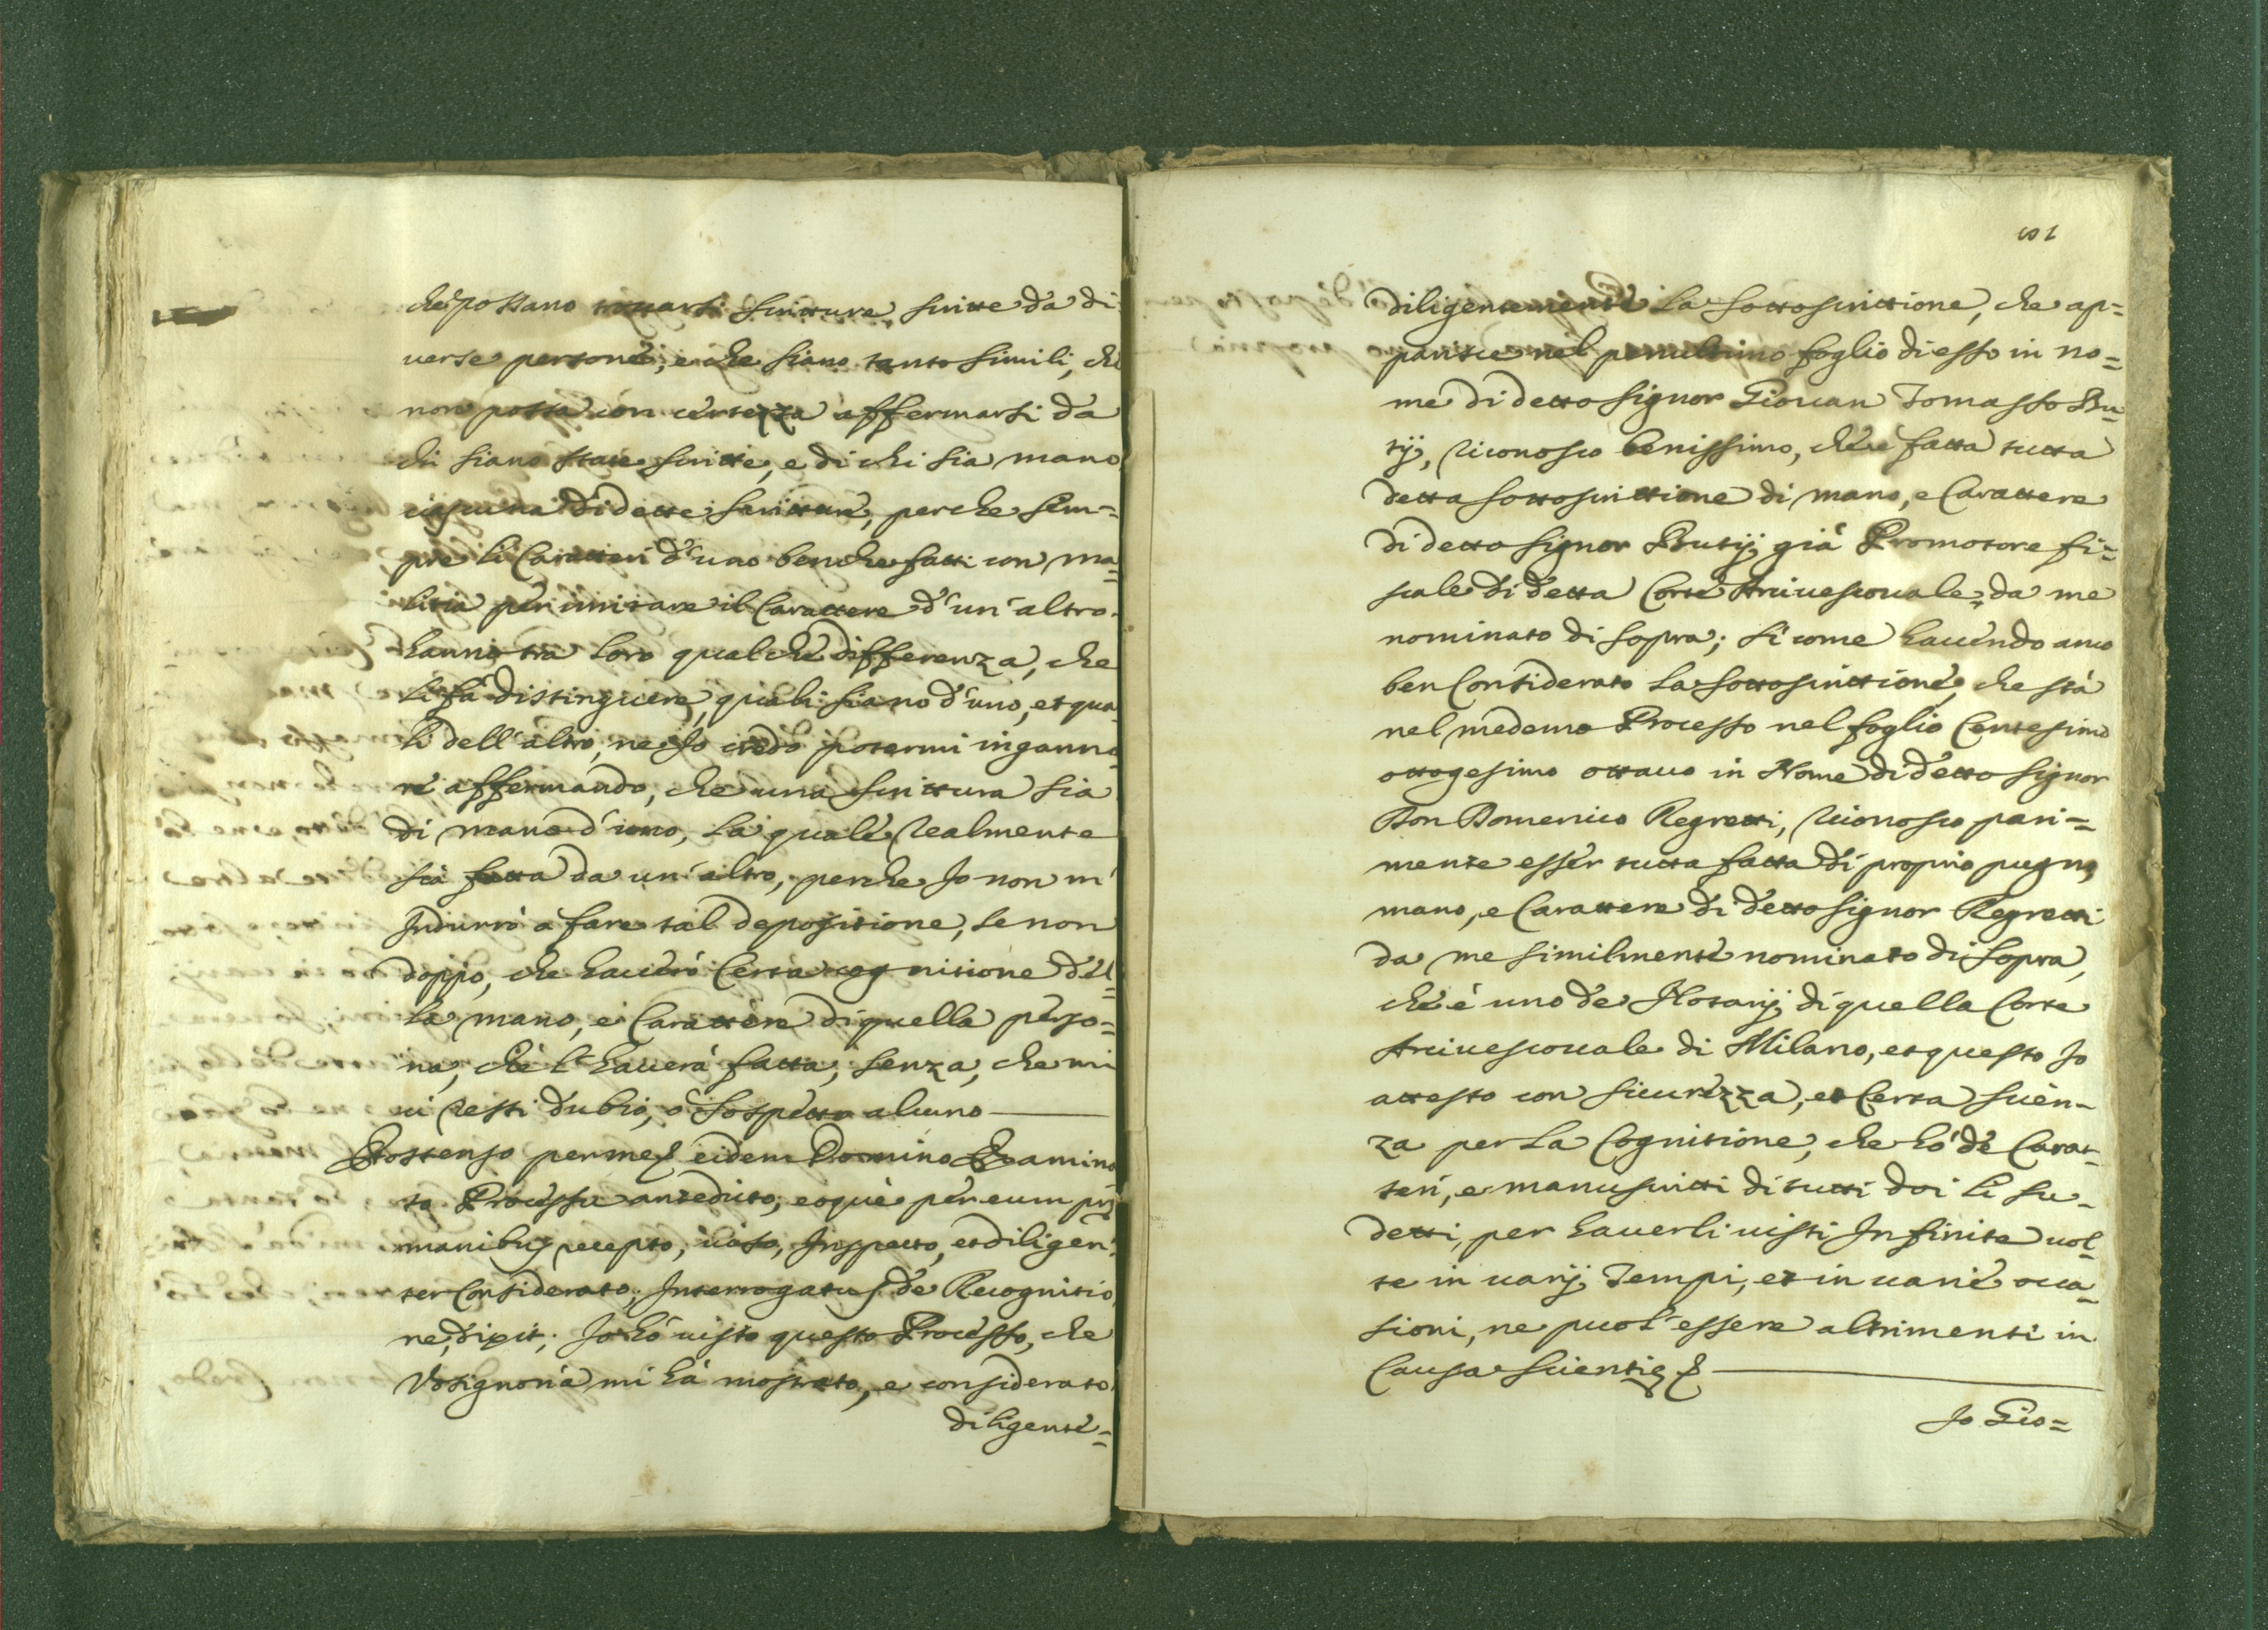 che possano trouarsi scritture scritte da di
uerse persone, e che siano tanto simili, che
non possa con certezza affermarsi da
chi siano state scritte, e di chi sia mano
ciascuna di dette scritture, perche sem=
pre li Caratteri d'uno benche fatti con ma=
litia per imitare il Carattere d'un'altro
hanno tra loro qualche differenza, che
li fà distinguere, quali siano d'uno, et qua
li dell'altro, ne Jo credo potermi inganna
re affermando, che una scrittura sia
di mano d'uno, la quale realmente
sia fatta da un'altro, perche Jo non m'
Indurrò a fare tal depositione, se non
doppo, che hauerò Certa cognitione del=
la mano, e Carattere di quella perso=
na, che l'hauerà fatta, senza, che mi
ui resti dubio, ò sospetto alcuno
Et ostenso per me eidem Domino Examina
to Processu antedicto, eoque per eum prij
manibus recepto, uiso, Inspecto, et diligen
ter Considerato, Interrogatus de Recognitio
ne, dixit; Jo hó uisto questo Processo, che
Vosignoria mi hà mostrato, e considerato
diligente=
101
diligentemente la sottoscrittione, che ap=
parisce nel penultimo foglio di esso in no=
me di detto signor Giouan Tomasso Bu
tij, riconosco benissimo, che è fatta tutta
detta sottoscrittione di mano, e Carattere
di detto signor Butij già Promotore fi=
scale di detta Corte Arciuescouale, da me
nominato di sopra; si come hauendo anco
ben Considerato la sottoscrittione, che stà
nel medemo Processo nel foglio Centesimo
ottogesimo ottauo in Nome di detto signor
Don Domenico Regretti, riconosco pari=
mente esser tutta fatta di proprio pugno,
mano, e Carattere di detto signor Regretti
da me similmente nominato di sopra,
che è uno de Notarij di quella Corte
Arciuescouale di Milano, et questo Jo
attesto con sicurezza, et Certa scien=
za per la Cognitione, che hó de Carat=
teri, e manuscritti di tutti doi li su=
detti, per hauerli uisti Infinite uol=
te in uarij Tempi, et in uarie occa=
sioni, ne puol'essere altrimenti in
Causa scientię
Jo Gio=